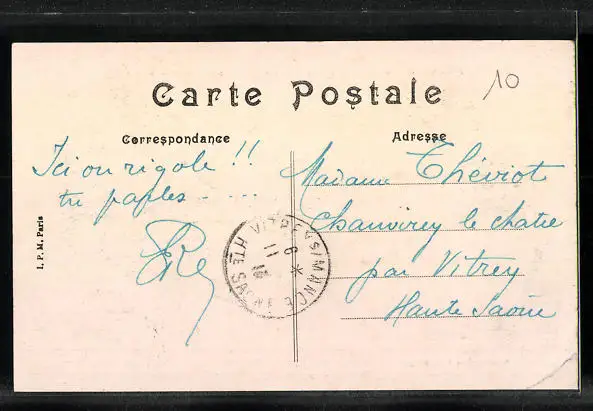 Carte Postale
10
Correspondance
Adresse
Ici on rigole !!
tu parles . . . .
Madame Théviot
Chauvirey le chatel
par Vitrey
Haute Saône
I. P. M. Paris
VITREY S/MANCE
6
11
HTE SAÔNE